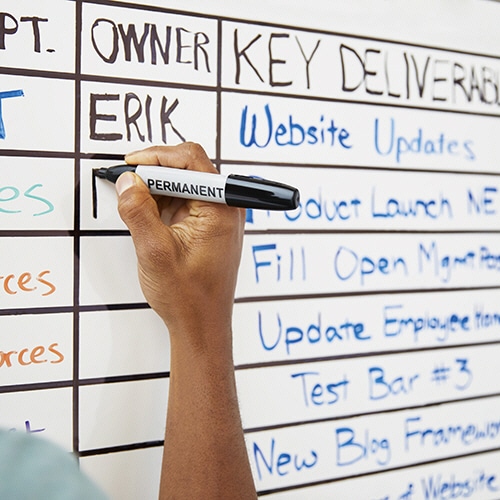 PT. OWNER KEY DELIVERABL
T ERIK Website Updates
es PERMANENT Product Launch NE
rces Fill Open Mgmt Pos
orces Update Employee Han
Test Bar #3
New Blog Framewor
Website